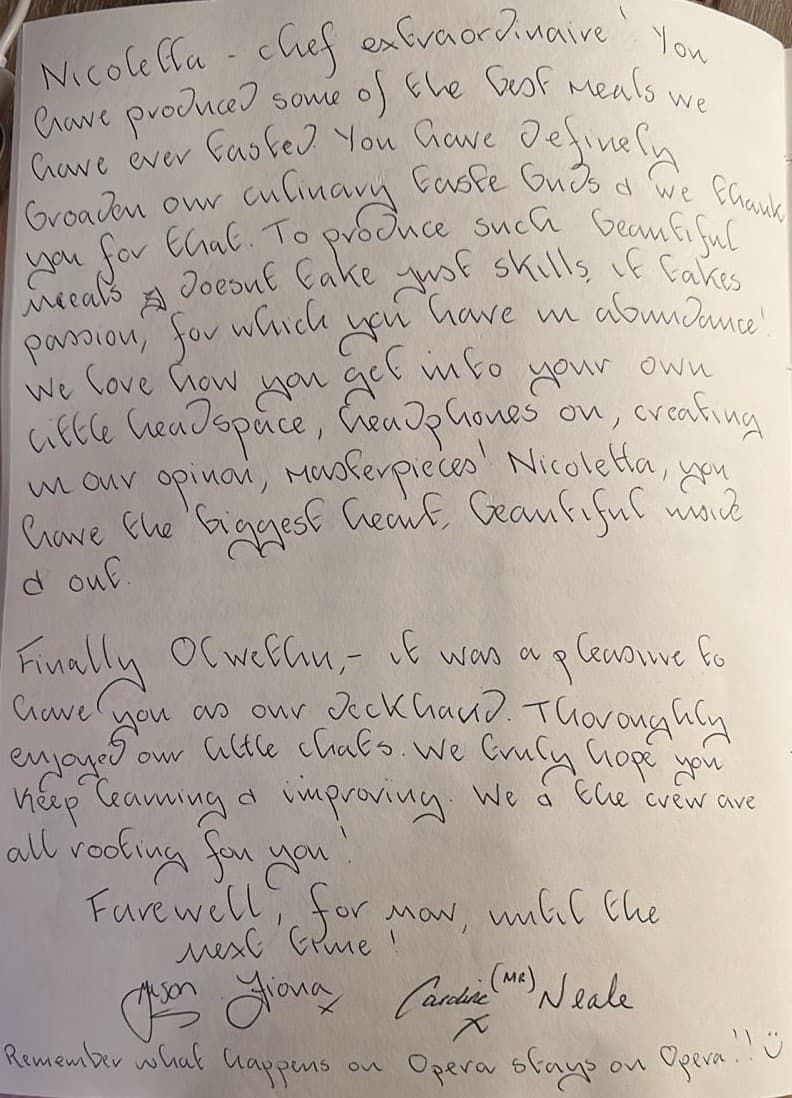 Nicoletta - chef extraordinaire! You
have produced some of the best meals we
have ever tasted. You have definely
broaden our culinary taste buds & we thank
you for that. To produce such beautiful
meals doesnt take just skills, it takes
passion, for which you have in abundance!
We love how you get into your own
little headspace, headphones on, creating
in our opinon, masterpieces! Nicoletta, you
have the biggest heart, beautiful inside
& out.
Finally Olwethu, - it was a pleasure to
have you as our deckhand. Thoroughly
enjoyed our little chats. We truly hope you
keep learning & improving. We & the crew are
all rooting for you!
Farewell, for now, until the
next time!
Jason Fiona x Caroline x (MR) Neale
Remember what happens on Opera stays on Opera!! ☺